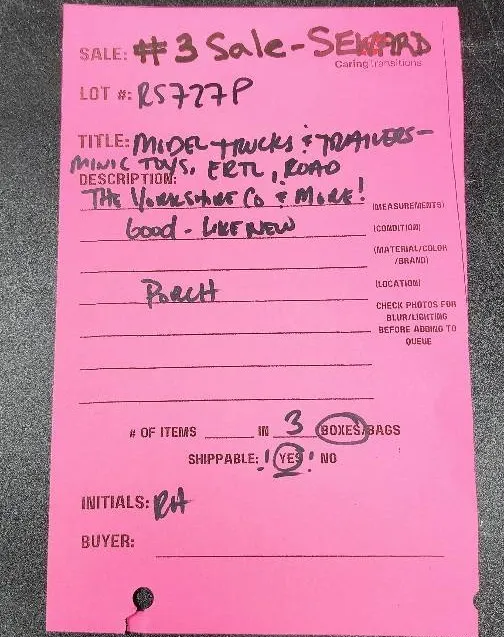 SALE: #3 Sale - SEWARD
CaringTransitions
LOT #: RS727P
TITLE: MODEL TRUCKS & TRAILERS -
MINIC TOYS, ERTL, ROAD
DESCRIPTION:
THE YORKSHIRE CO & MORE!
(MEASUREMENTS)
GOOD - LIKE NEW
(CONDITION)
(MATERIAL/COLOR
/BRAND)
PORCH
(LOCATION)
CHECK PHOTOS FOR
BLUR/LIGHTING
BEFORE ADDING TO
QUEUE
# OF ITEMS ______ IN 3 BOXES/BAGS
SHIPPABLE: ! YES ! NO
INITIALS: RH
BUYER: